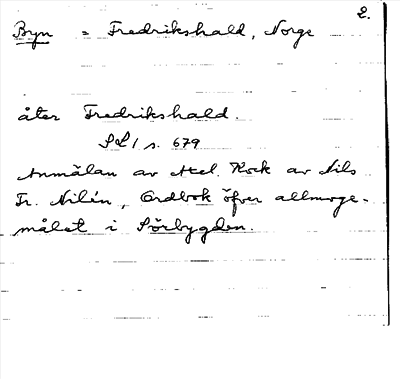 2.
Byn = Fredrikshald, Norge
åter Fredrikshald.
SL 1 s. 679
Anmälan av Axel Kock av Nils
Fr. Nilén, Ordbok öfver allmoge-
målet i Sörbygden.